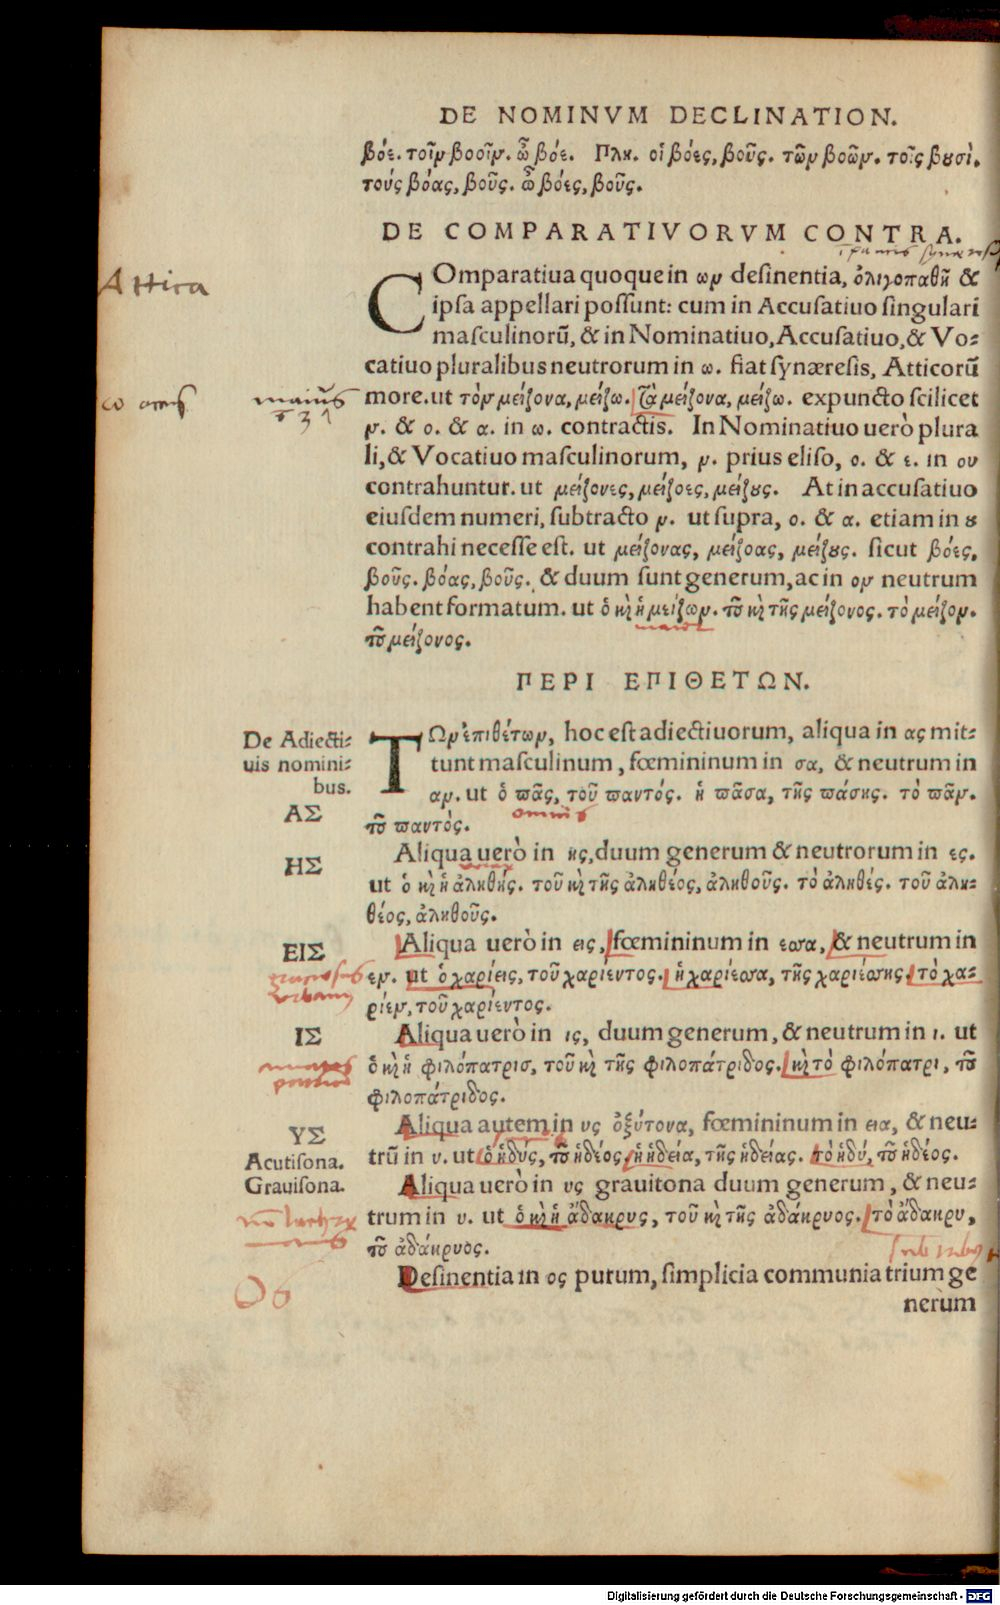 DE NOMINVM DECLINATION.
βόε. τοῖν βοοῖν. ὦ βόε. Πλη. οἱ βόες, βοῦς. τῶν βοῶν. τοῖς βȣσὶ.
τούς βόας, βοῦς. ὦ βόες, βοῦς.
DE COMPARATIVORVM CONTRA.
Attica
Comparatiua quoque in ων deſinentia, ὀλιγοπαθῆ &
ipſa appellari poſſunt: cum in Accuſatiuo ſingulari
maſculinorũ, & in Nominatiuo, Accuſatiuo, & Vo-
catiuo pluralibus neutrorum in ω. fiat ſynæreſis, Atticorũ
maius
more. ut τὸν μείζονα, μείζω. Τὰ μείζονα, μείζω. expuncto ſcilicet
ν. & ο. & α. in ω. contractis. In Nominatiuo uerò plura
li, & Vocatiuo maſculinorum, ν. prius eliſo, ο. & ε. in ου
contrahuntur. ut μείζονες, μείζοες, μείζȣς. At in accuſatiuo
eiuſdem numeri, ſubtracto ν. ut ſupra, ο. & α. etiam in ȣ
contrahi neceſſe eſt. ut μείζονας, μείζοας, μείζȣς. ſicut βόες,
βοῦς. βόας, βοῦς. & duum ſunt generum, ac in ον neutrum
habent formatum. ut ὁ κὶ ἡ μείζων. τȣ͂ κὶ τῆς μείζονος. τὸ μείζον.
maior
τȣ͂ μείζονος.
ΠΕΡΙ ΕΠΙΘΕΤΩΝ.
De Adiecti-
uis nomini-
bus.
ΤΩν ἐπιθέτων, hoc eſt adiectiuorum, aliqua in ας mit-
tunt maſculinum, fœmininum in σα, & neutrum in
αν. ut ὁ πᾶς, τοῦ παντός. ἡ πᾶσα, τῆς πάσης. τὸ πᾶν.
ΑΣ
omnis
τȣ͂ παντὸς.
ΗΣ
Aliqua uerò in ης, duum generum & neutrorum in ες.
ut ὁ κὶ ἡ ἀληθής. τοῦ κὶ τῆς ἀληθέος, ἀληθοῦς. τὸ ἀληθές. τοῦ ἀλη-
θέος, ἀληθοῦς.
ΕΙΣ
Aliqua uerò in εις, fœmininum in εσσα, & neutrum in
εν. ut ὁ χαρίεις, τοῦ χαρίεντος. ἡ χαρίεσσα, τῆς χαριέσσης. τὸ χα-
ρίεν, τοῦ χαρίεντος.
ΙΣ
Aliqua uerò in ις, duum generum, & neutrum in ι. ut
ὁ κὶ ἡ φιλόπατρισ, τοῦ κὶ τῆς φιλοπάτριδος. κὶ τὸ φιλόπατρι, τȣ͂
φιλοπάτριδος.
ΥΣ
Acutiſona.
Grauiſona.
Aliqua autem in υς ὀξύτονα, fœmininum in εια, & neu-
trũ in υ. ut ὁ ἡδύς, τȣ͂ ἡδέος, ἡ ἡδεία, τῆς ἡδείας. τὸ ἡδύ, τȣ͂ ἡδέος.
Aliqua uerò in υς grauitona duum generum, & neu-
trum in υ. ut ὁ κὶ ἡ ἄδακρυς, τοῦ κὶ τῆς ἀδάκρυος. τὸ ἄδακρυ,
τȣ͂ ἀδάκρυος.
Ος
Deſinentia in ος purum, ſimplicia communia trium ge
nerum
Digitalisierung gefördert durch die Deutsche Forschungsgemeinschaft - DFG